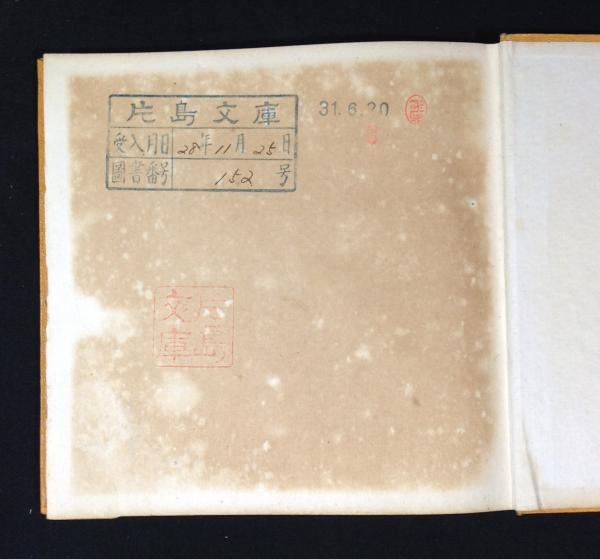 片島文庫
受入月日 28年11月25日
圖書番号 152号
31.6.20
片島
文庫